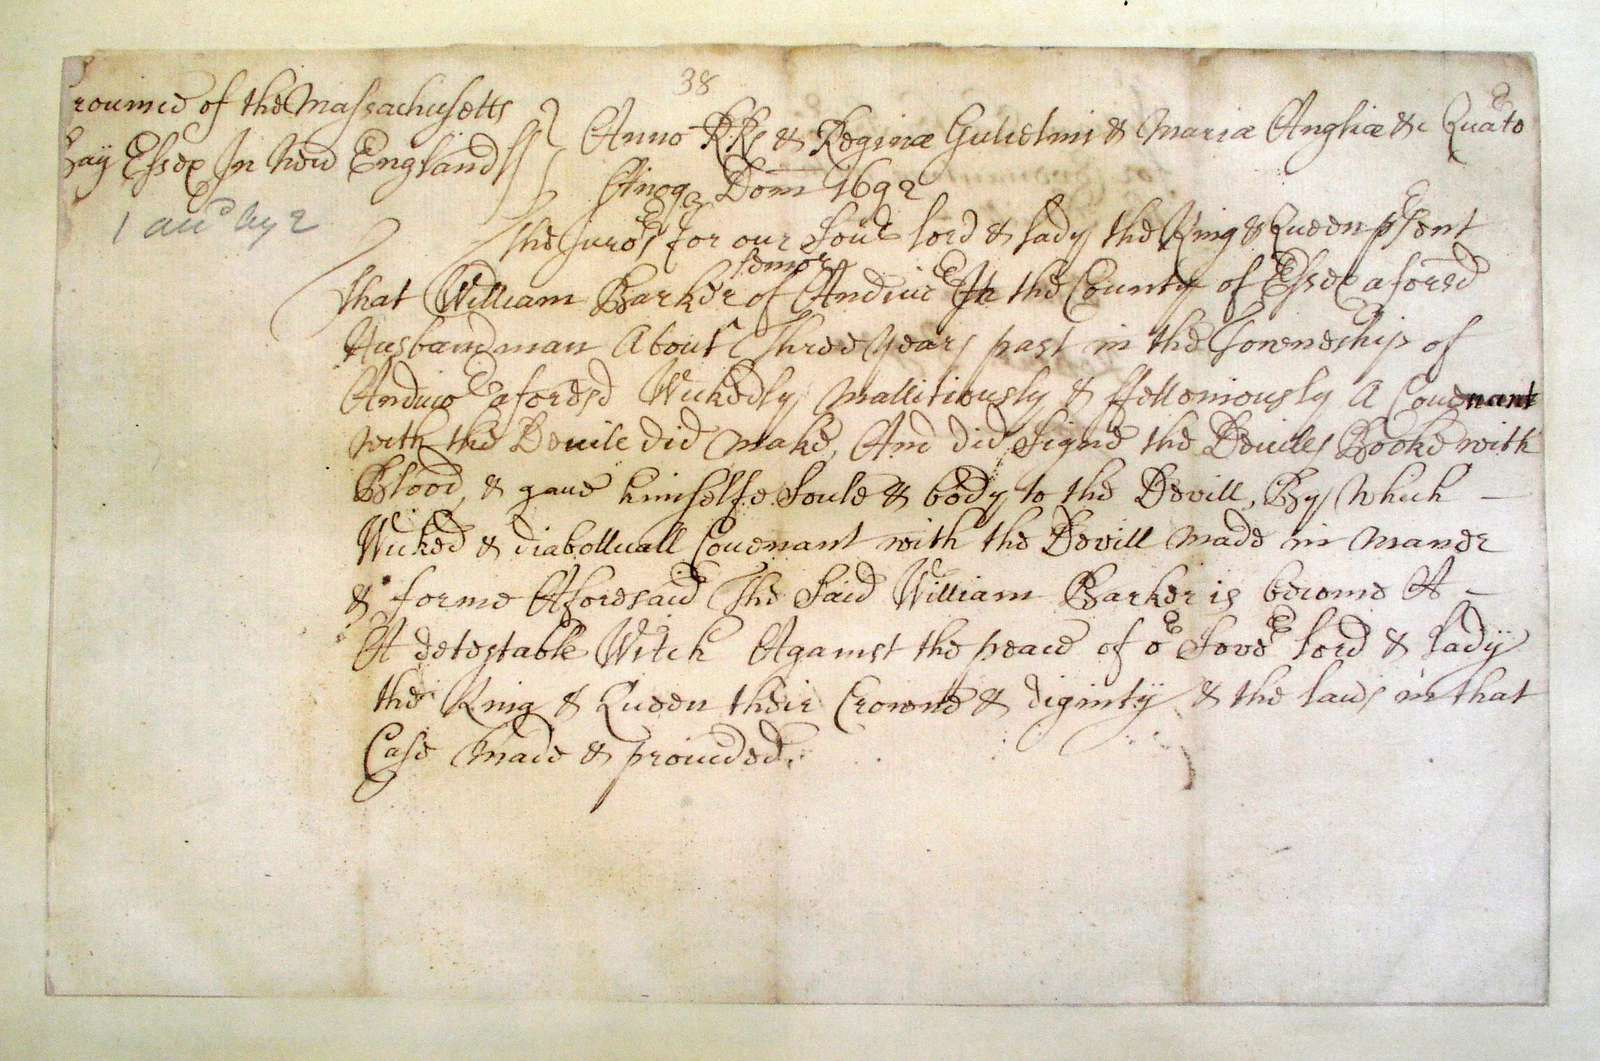 38
rouince of the Massachusetts
Bay Essex In New England
Anno RRs & Reginæ Gulielmi & Mariæ Angliæ &c Quarto
Anoq Dom 1692
The Juro:rs for our Soue:r lord & lady the King & Queen p:rsent
That William Barker senior of Andiu:r In the County of Essex afores:d
Husbandman About Three years past in the Towneship of
Andiuo:r afores:d Wickedly Mallitiously & ffelloniously A Couenant
with the Deuile did make, And did Signe the Deuilles Booke with
Blood, & gaue himselfe Soule & body to the Devill, By which —
Wicked & diabollicall Couenant with the Devill made in maner
& forme Aforesaid The Said William Barker is become A —
A detestable Witch Against the peace of o:r Sove:r lord & lady
the King & Queen their Crowne & diginty & the laws in that
Case made & prouided.